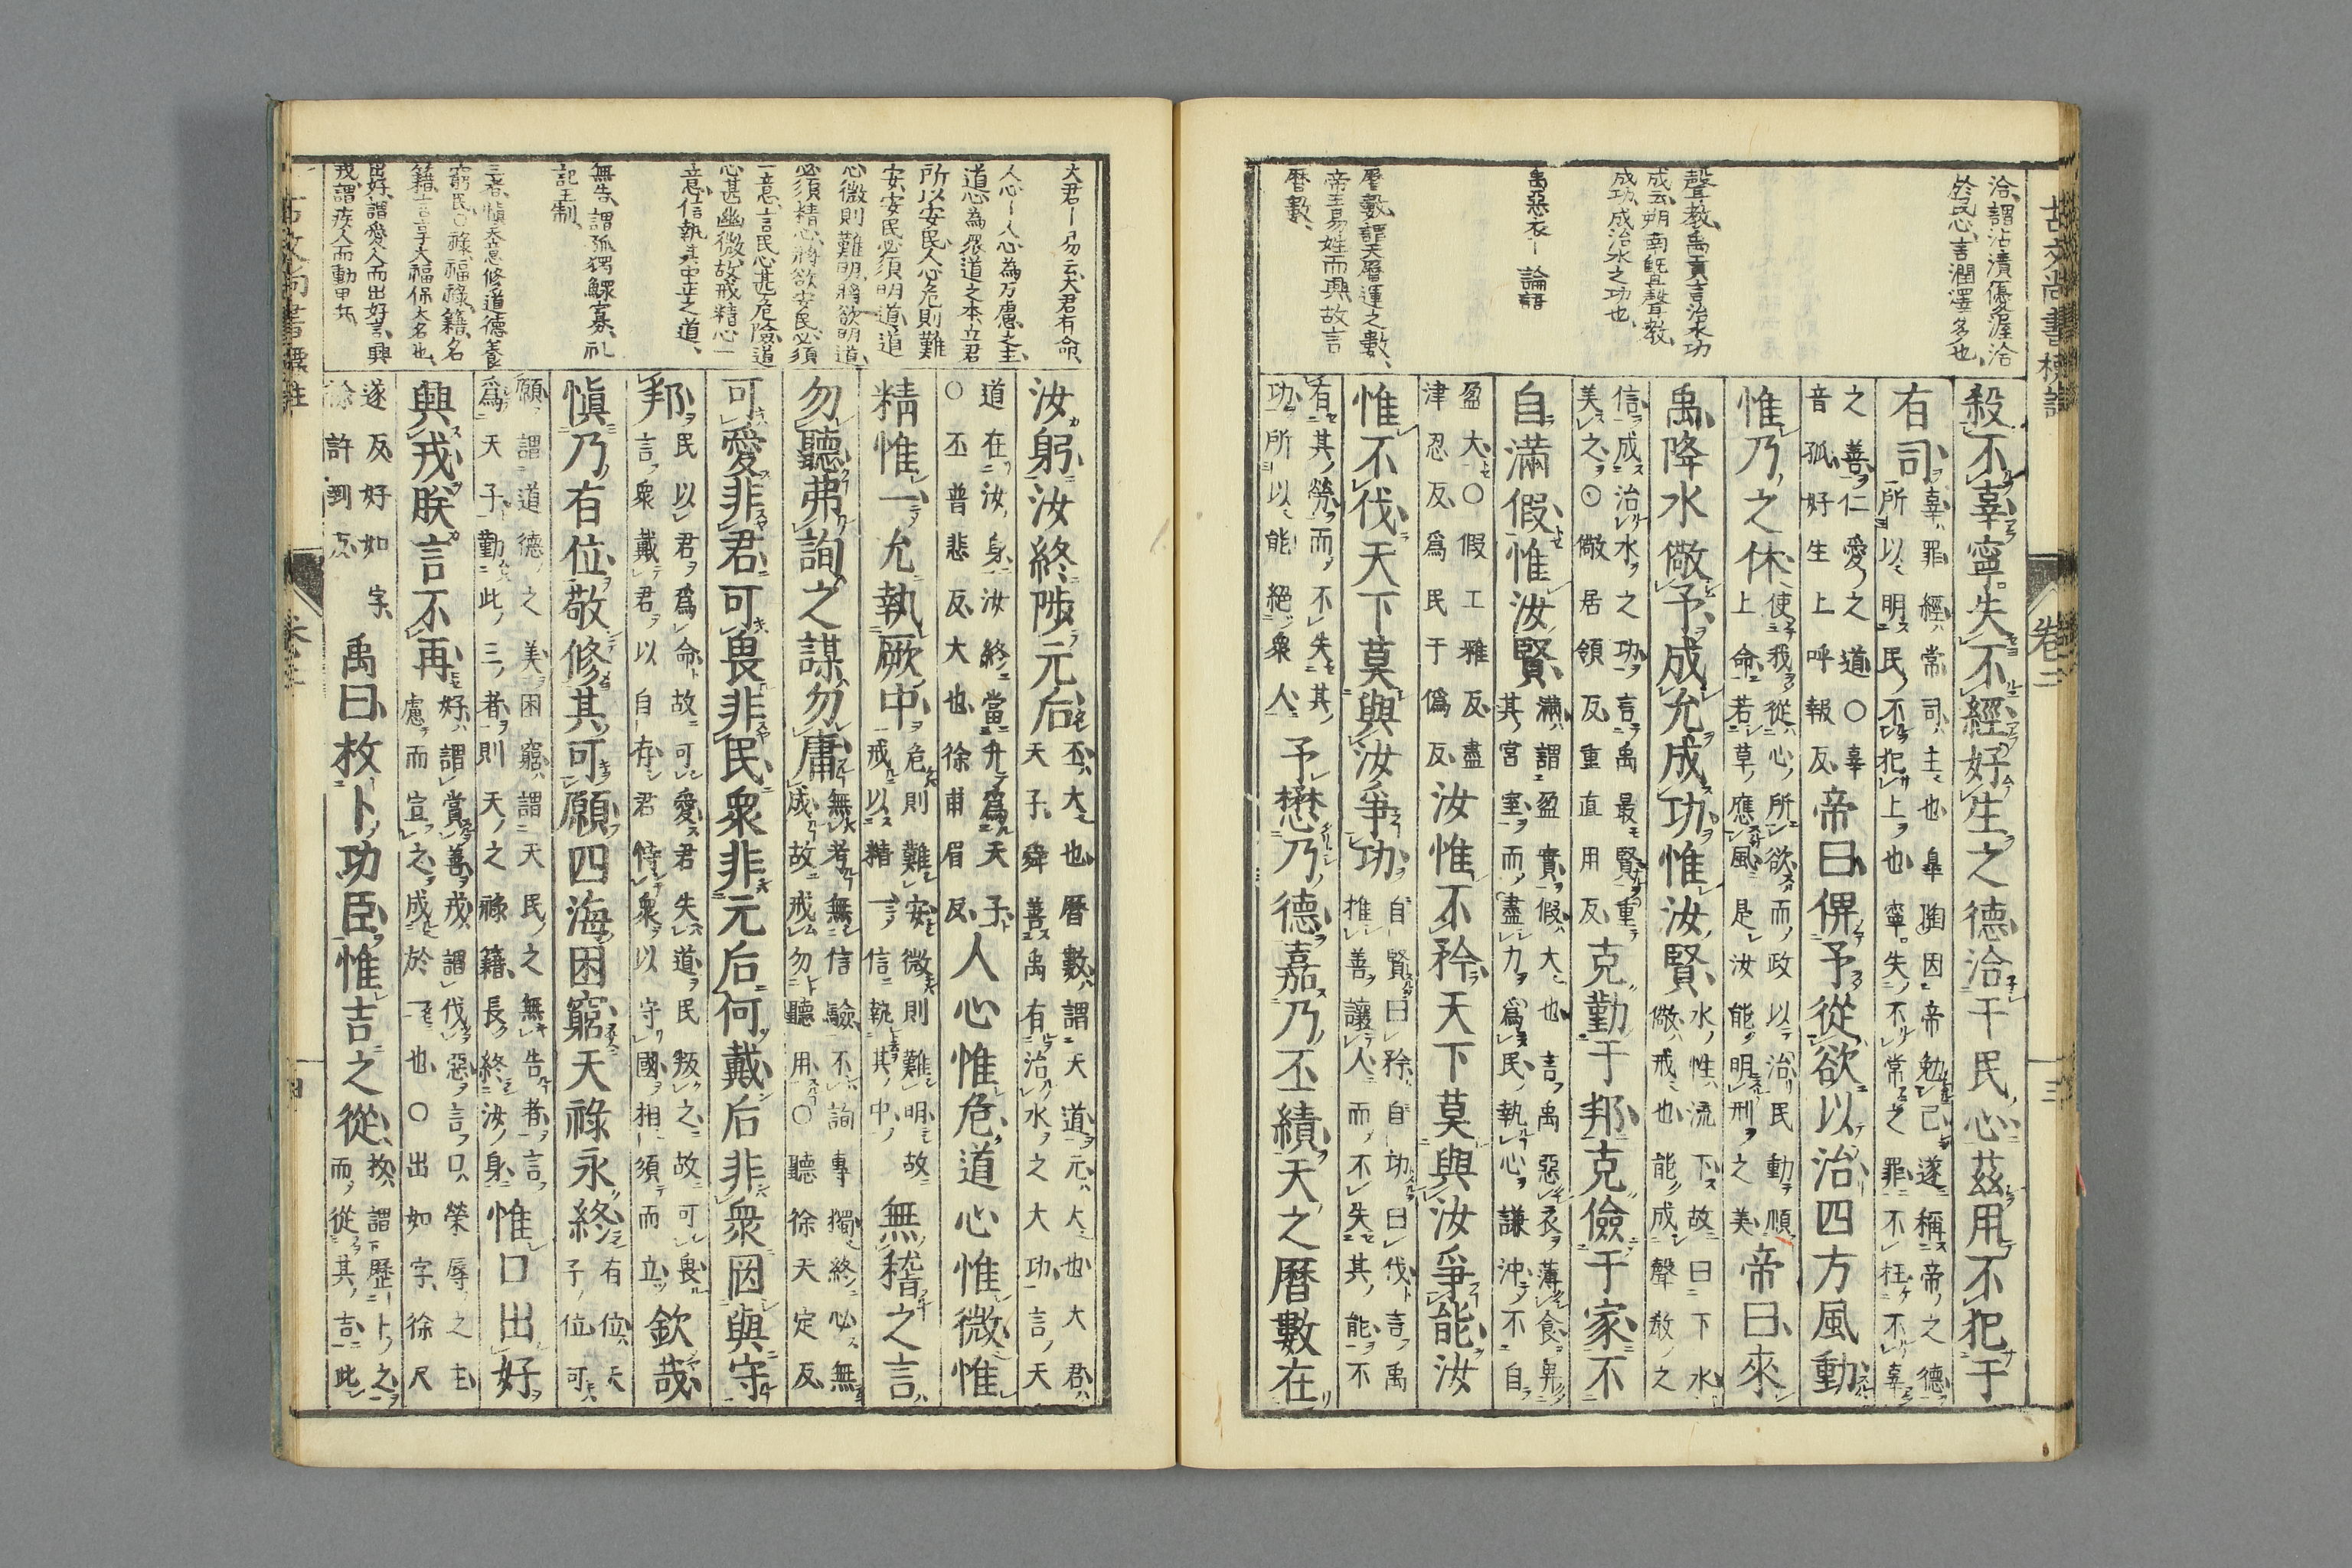 古文尚書標註
卷二
三
洽謂沾漬優渥洽
於民心言潤澤多也
聲教禹貢言治水功
成云朔南曁聲教
成功成治水之功也
禹惡衣ー論語
曆數謂天曆運之數
帝王易姓而興故言
曆數
殺不辜寧失不經好生之德洽于民心茲用不犯于
有司辜罪經常司主也皐陶因帝勉己遂稱帝之德所以明民不犯上也寧失不常之罪不枉不辜
之善仁愛之道〇辜音孤好生上呼報反帝曰俾予從欲以治四方風動
惟乃之休使我從心所欲而政以治民動順上命若草應風是汝能明刑之美帝曰來
禹降水儆予成允成功惟汝賢水性流下故曰下水儆戒也能成聲教之
信成治水之功言禹最賢重美之〇儆居領反重直用反克勤于邦克儉于家不
自滿假惟汝賢滿謂盈實假大也言禹惡衣薄食卑其宮室而盡力爲民執心謙沖不自
盈大〇假工雅反盡津忍反爲民于僞反汝惟不矜天下莫與汝爭能汝
惟不伐天下莫與汝爭功自賢曰矜自功曰伐言禹推善讓人而不失其能不
有其勞而不失其功所以能絕衆人予懋乃德嘉乃丕績天之曆數在
大君ー易云大君有命
人心ー人心為万慮之主
道心為眾道之本立君
所以安民人心危則難
安安民必須明道道
心微則難明將欲明道
必須精心將欲安民必須
一意言民心甚危險道
心甚幽微故戒精心一
意信執其中正之道
無告謂孤獨鰥寡礼
記王制
三者愼天意修道德養
窮民〇祿福祿籍名
籍言享大福保大名也
出好謂愛人而出好言興
戎謂疾人而動甲兵
汝躬汝終陟元后丕大也曆數謂天道元大也大君天子舜善禹有治水之大功言天
道在汝身汝終當升爲天子〇丕普悲反大也徐甫眉反人心惟危道心惟微惟
精惟一允執厥中危則難安微則難明故戒以精一信執其中無稽之言
勿聽弗詢之謀勿庸無考無信驗不詢專獨終必無成故戒勿聽用〇聽徐天定反
可愛非君可畏非民衆非元后何戴后非衆罔與守
邦民以君爲命故可愛君失道民叛之故可畏言衆戴君以自存君恃衆以守國相須而立欽哉
愼乃有位敬修其可願四海困窮天祿永終有位天子位可
願謂道德之美困窮謂天民之無告者言爲天子勤此三者則天之祿籍長終汝身惟口出好
興戎朕言不再好謂賞善戎謂伐惡言口榮辱之主慮而宣之成於一也〇出如字徐尺
遂反好如字徐許到反禹曰枚卜功臣惟吉之從枚謂歷卜之而從其吉此
古文尚書標註
卷二
四